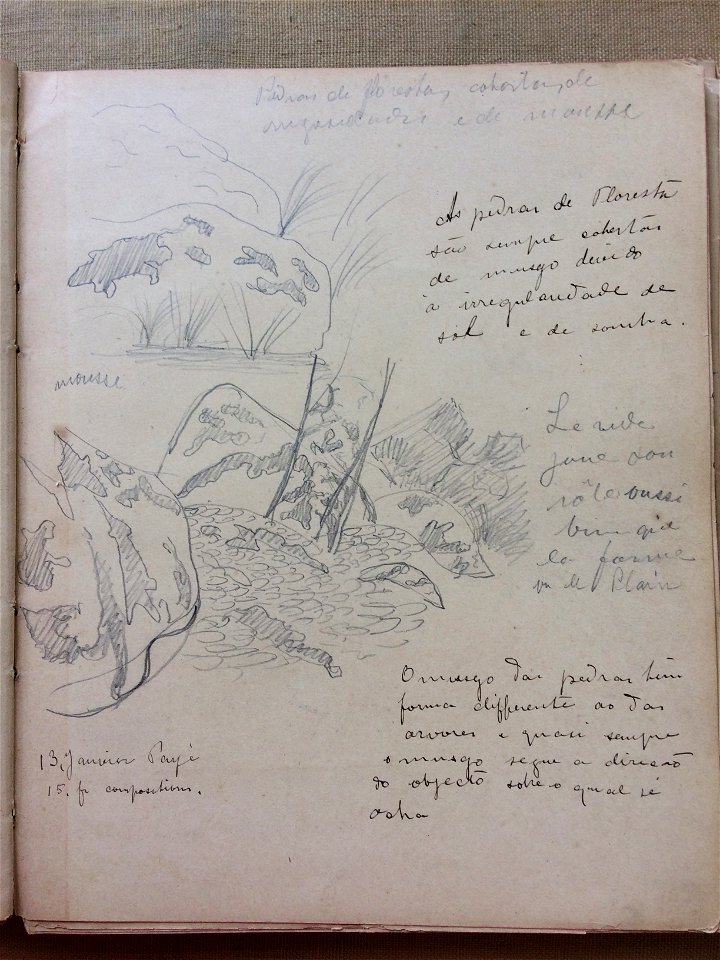 Pedras de florestas, cobertas de
rugosidades e de mousse
As pedras de Floresta
são sempre cobertas
de musgo devido
à irregularidade de
sol e de sombra.
mousse
Le vide
joue son
rôle aussi
bien que
la forme
ou le Plain
O musgo das pedras têm
forma differente ao das
arvores e quasi sempre
o musgo segue a direcção
do objecto sobre o qual se
acha
13, Janvier Payé
15. fr compositions.